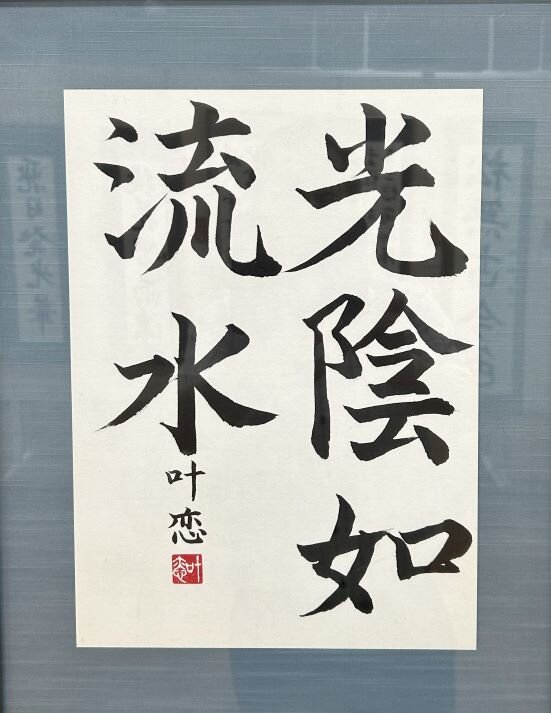 光陰如
流水
叶恋
叶恋